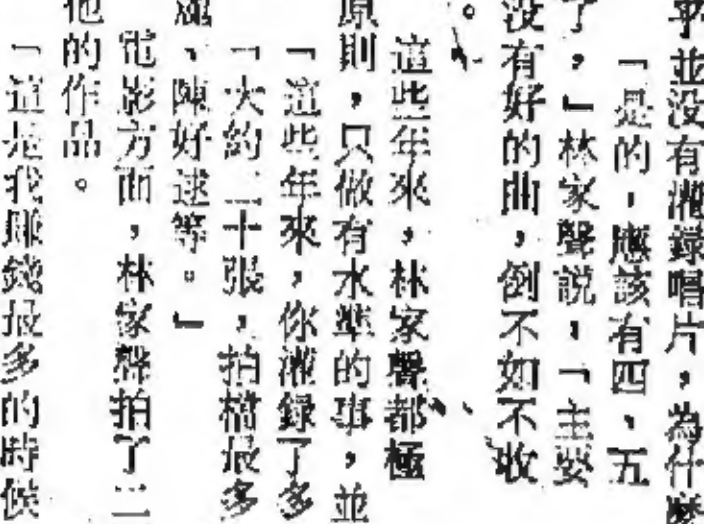 乎並没有灌錄唱片，為什麼
「是的，應該有四、五
了，」林家聲説，「主要
没有好的曲，倒不如不收
。
這些年來，林家聲都極
原則，只做有水準的事，並
「這些年來，你灌錄了多
「大約二十張，拍檔最多
、陳好逑等。」
電影方面，林家聲拍了二
他的作品。
「這是我賺錢最多的時候